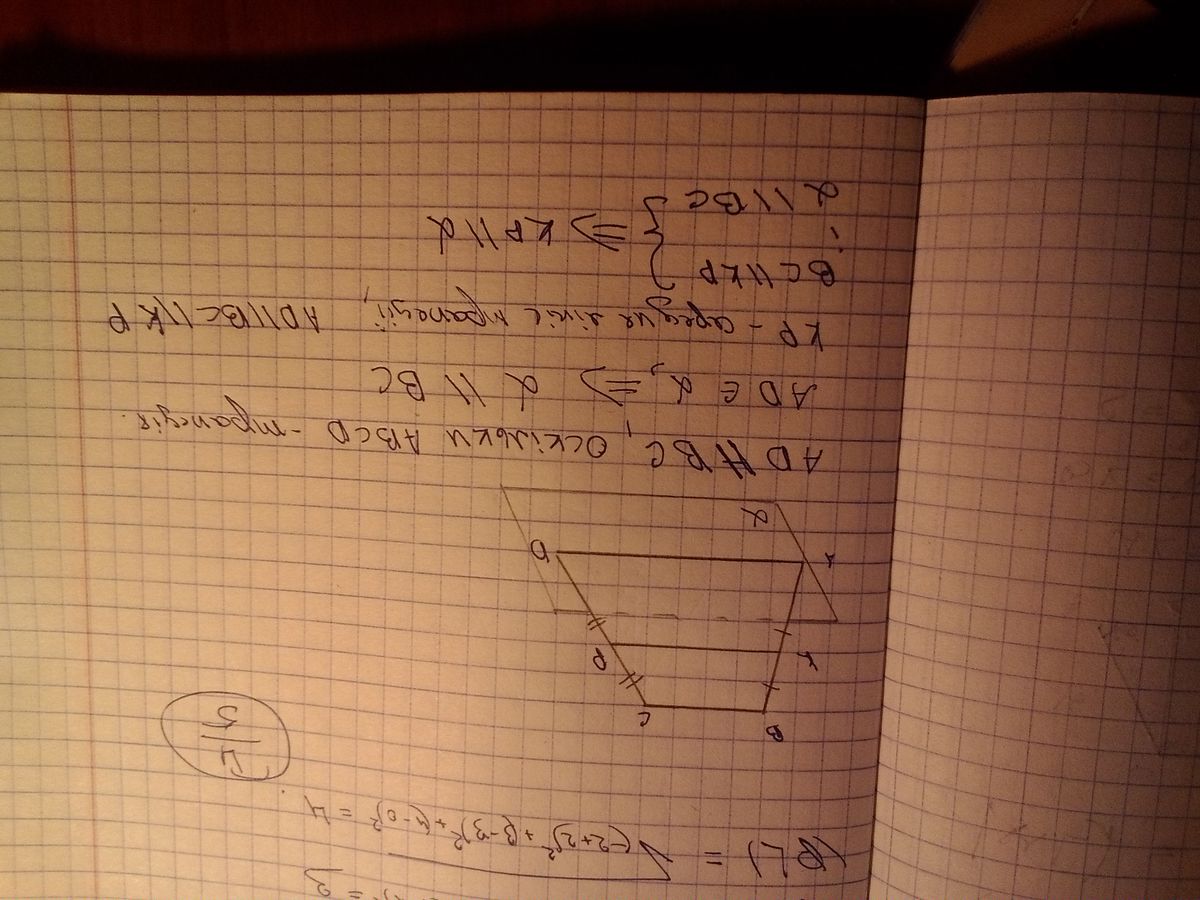 = 3
(PL) = √(-2+2)² + (3-3)² + (4-0)² = 4
B
C
K
P
A
D
α
AD ∦ BC, оскільки ABCD - трапеція.
AD ∈ α, => α || BC
KP - середня лінія трапеції, AD||BC||KP
BC||KP
i } => KP||α
α||BC